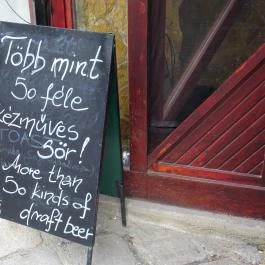 Több mint
50 féle
kézműves
sör!
More than
50 kinds of
draft beer